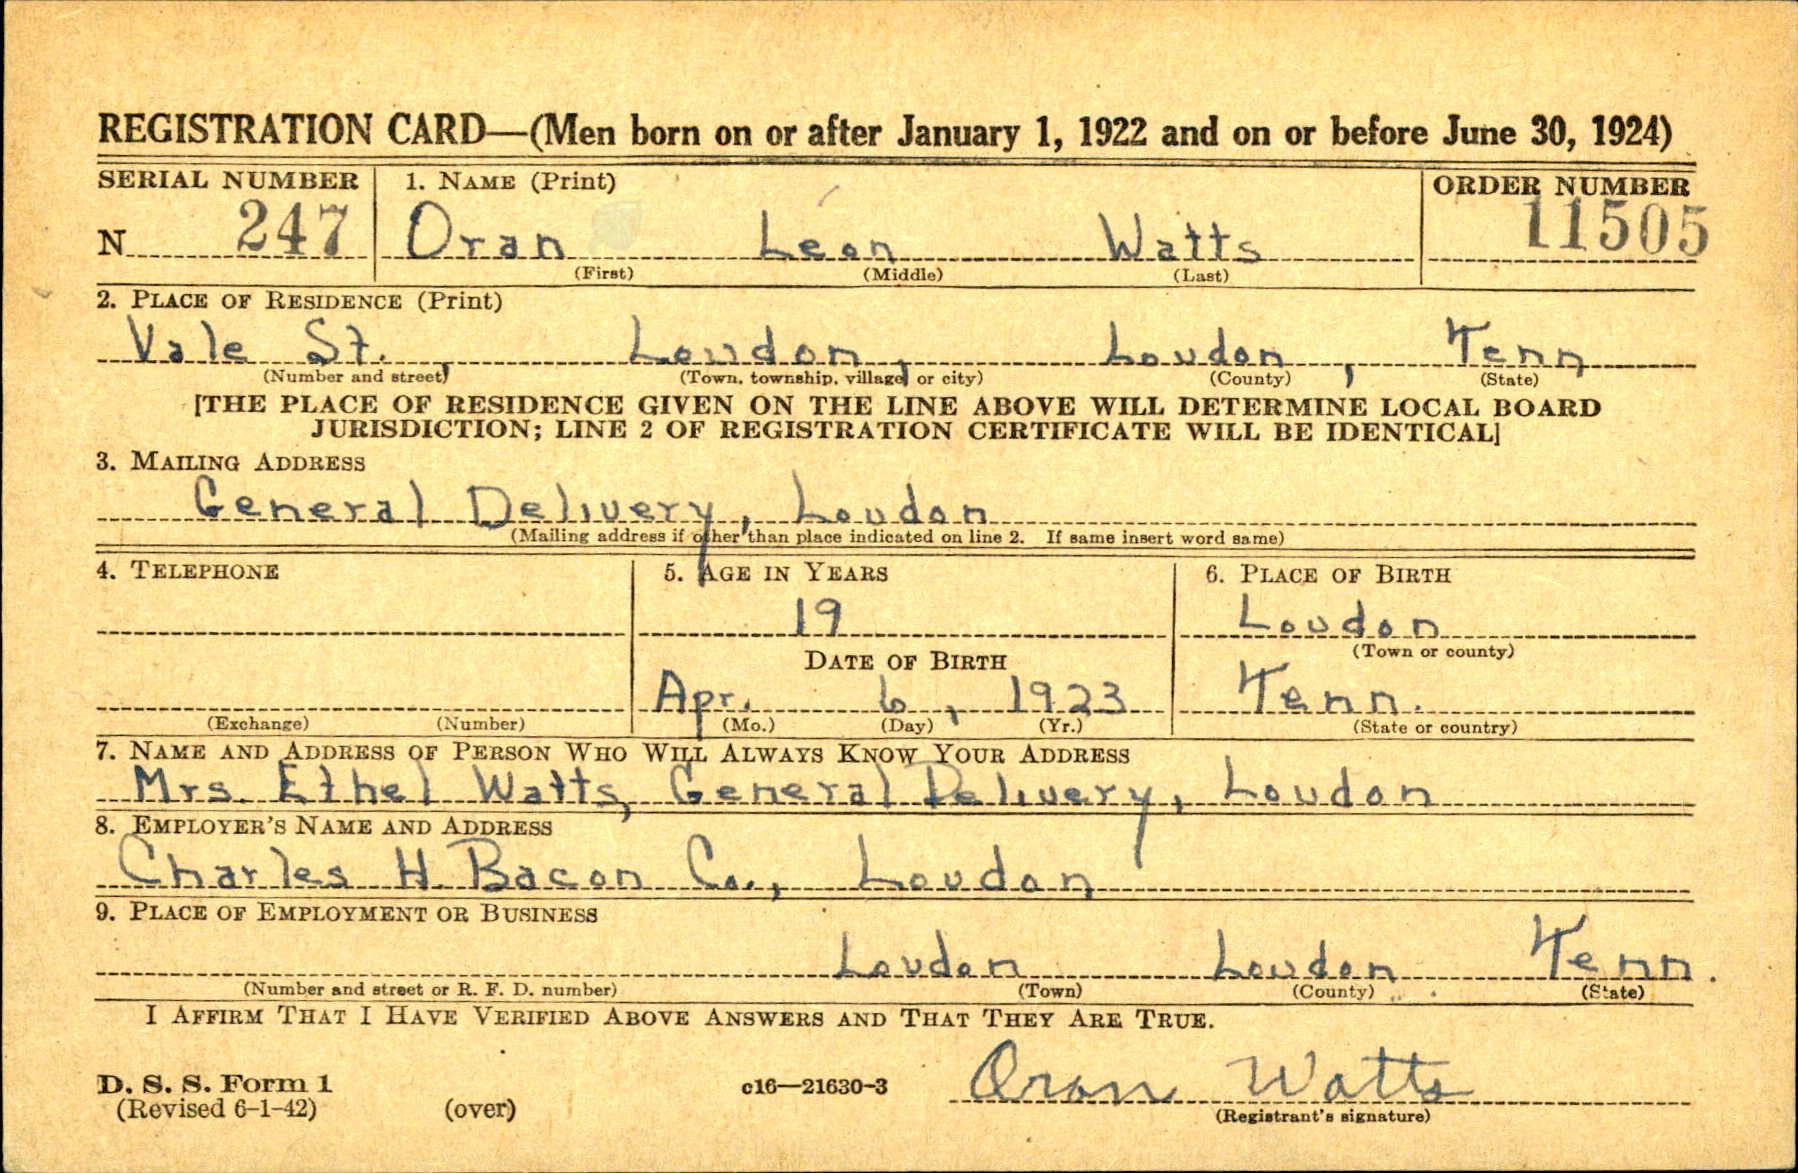 REGISTRATION CARD—(Men born on or after January 1, 1922 and on or before June 30, 1924)
SERIAL NUMBER 1. NAME (Print) ORDER NUMBER
N 247 Oran Leon Watts 11505
(First) (Middle) (Last)
2. PLACE OF RESIDENCE (Print)
Vale St., Loudon, Loudon, Tenn
(Number and street) (Town, township, village, or city) (County) (State)
[THE PLACE OF RESIDENCE GIVEN ON THE LINE ABOVE WILL DETERMINE LOCAL BOARD
JURISDICTION; LINE 2 OF REGISTRATION CERTIFICATE WILL BE IDENTICAL]
3. MAILING ADDRESS
General Delivery, Loudon
(Mailing address if other than place indicated on line 2. If same insert word same)
4. TELEPHONE 5. AGE IN YEARS 6. PLACE OF BIRTH
19 Loudon
(Town or county)
DATE OF BIRTH
Apr. 6, 1923 Tenn.
(Exchange) (Number) (Mo.) (Day) (Yr.) (State or country)
7. NAME AND ADDRESS OF PERSON WHO WILL ALWAYS KNOW YOUR ADDRESS
Mrs. Ethel Watts, General Delivery, Loudon
8. EMPLOYER'S NAME AND ADDRESS
Charles H. Bacon Co., Loudon
9. PLACE OF EMPLOYMENT OR BUSINESS
Loudon Loudon Tenn.
(Number and street or R. F. D. number) (Town) (County) (State)
I AFFIRM THAT I HAVE VERIFIED ABOVE ANSWERS AND THAT THEY ARE TRUE.
D. S. S. Form 1 c16—21630-3 Oran Watts
(Revised 6-1-42) (over) (Registrant's signature)